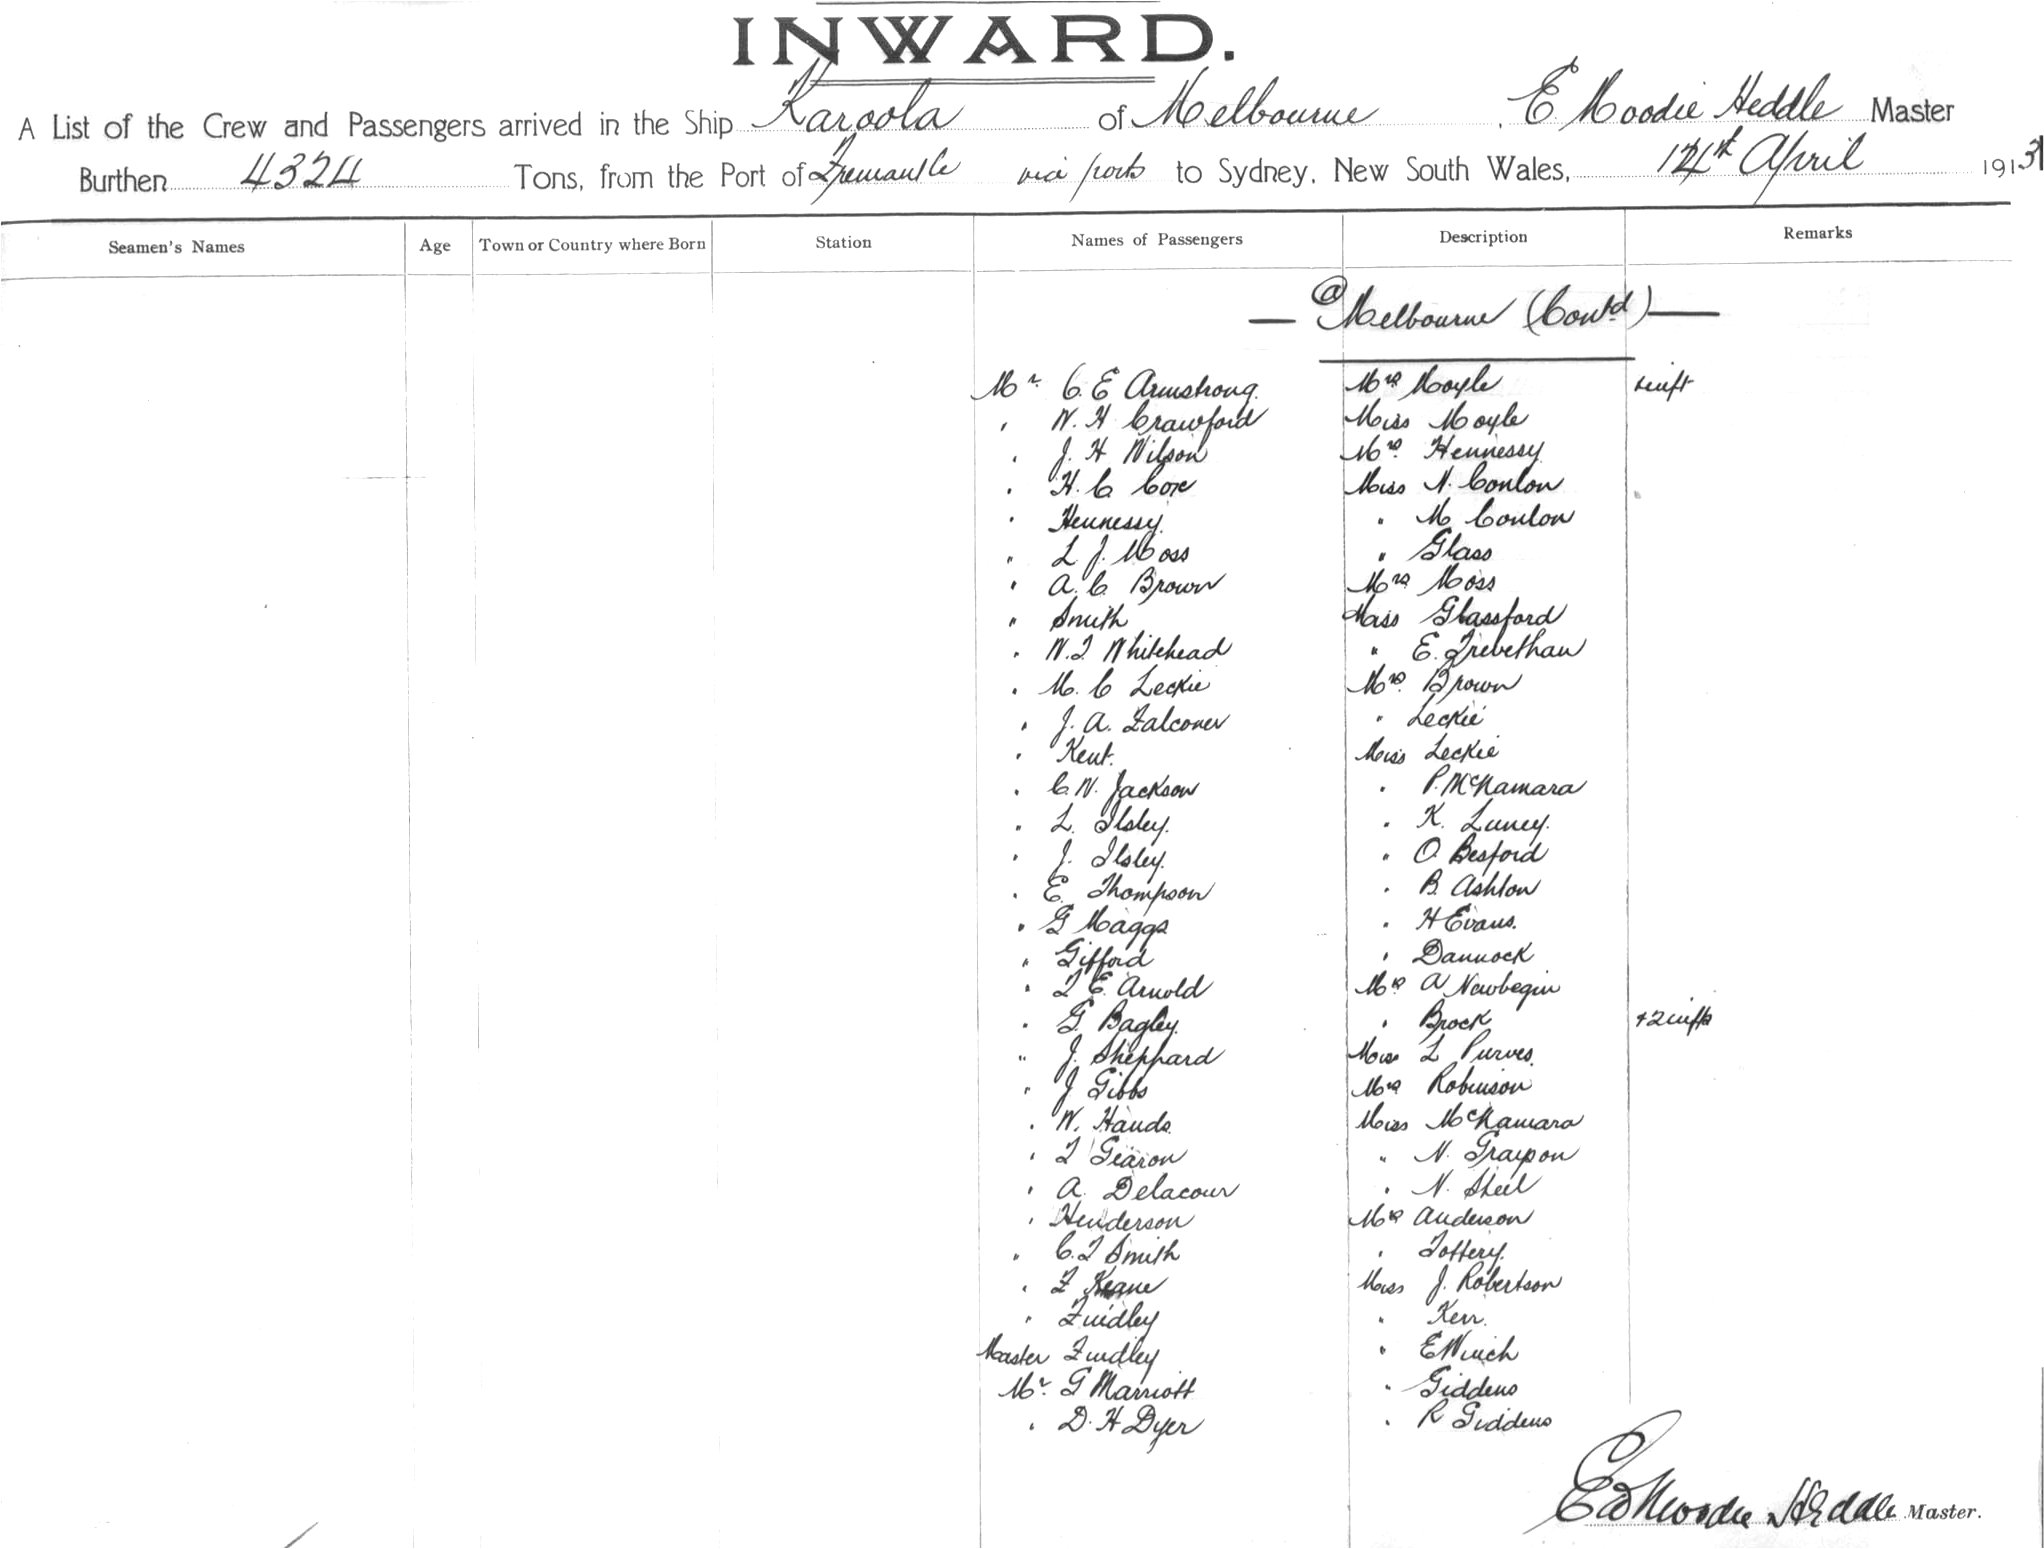 INWARD.
A List of the Crew and Passengers arrived in the Ship Karoola of Melbourne, E Moodie Heddle Master
Burthen 4324 Tons, from the Port of Fremantle via ports to Sydney, New South Wales, April 1913
Seamen's Names Age Town or Country where Born Station Names of Passengers Description Remarks
— @ Melbourne (Contd) —
Mr C. E Armstrong. Mrs Moyle
" W. H Crawford Miss Moyle
" J. H Wilson Mrs Hennessy
" H. C Cox Miss N. Conlon
" Hennessy. " M Conlon
" L J. Moss " Glass
" A. C Brown Mrs Moss
" Smith Miss Glassford
" W. T Whitehead " E. Trevethan
" M. C Leckie Mrs. Brown
" J. A. Falconer " Leckie
" Kent. Miss Leckie
" C. W. Jackson " P. McNamara
" L. Ilsley. " K. Luney.
" J. Ilsley. " O. Besford
" E. Thompson " B. Ashton
" G Maggs " H Evans.
" Gifford " Dannock
" T E. Arnold Mrs A Newbegin
" G. Bagley. " Brock + 2 infts
" J. Sheppard Miss L Purves.
" J Gibbs Mrs Robinson
" W. Hands Miss McNamara
" T Gearon " N.
" A. Delacour " N. Sheil
" Henderson Mrs Anderson
" C. T Smith "
" F Keane Miss J. Robertson
" Findley " Kerr.
Master Findley " E Winch
Mr. G Marriott " Giddens
" D. H Dyer " R Giddens
Ed Moodie Heddle Master.